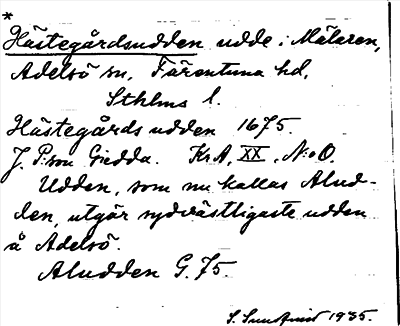 *
Hästegårdsudden udde i Mälaren,
Adelsö sn, Färentuna hd,
Sthlms l.
Hästegårds udden 1675.
J. P:son Giedda. KrA, XX, N:o 0.
Udden, som nu kallas Alud-
den, utgör sydvästligaste udden
å Adelsö.
Aludden G. 75.
S. Sundkvist 1935.